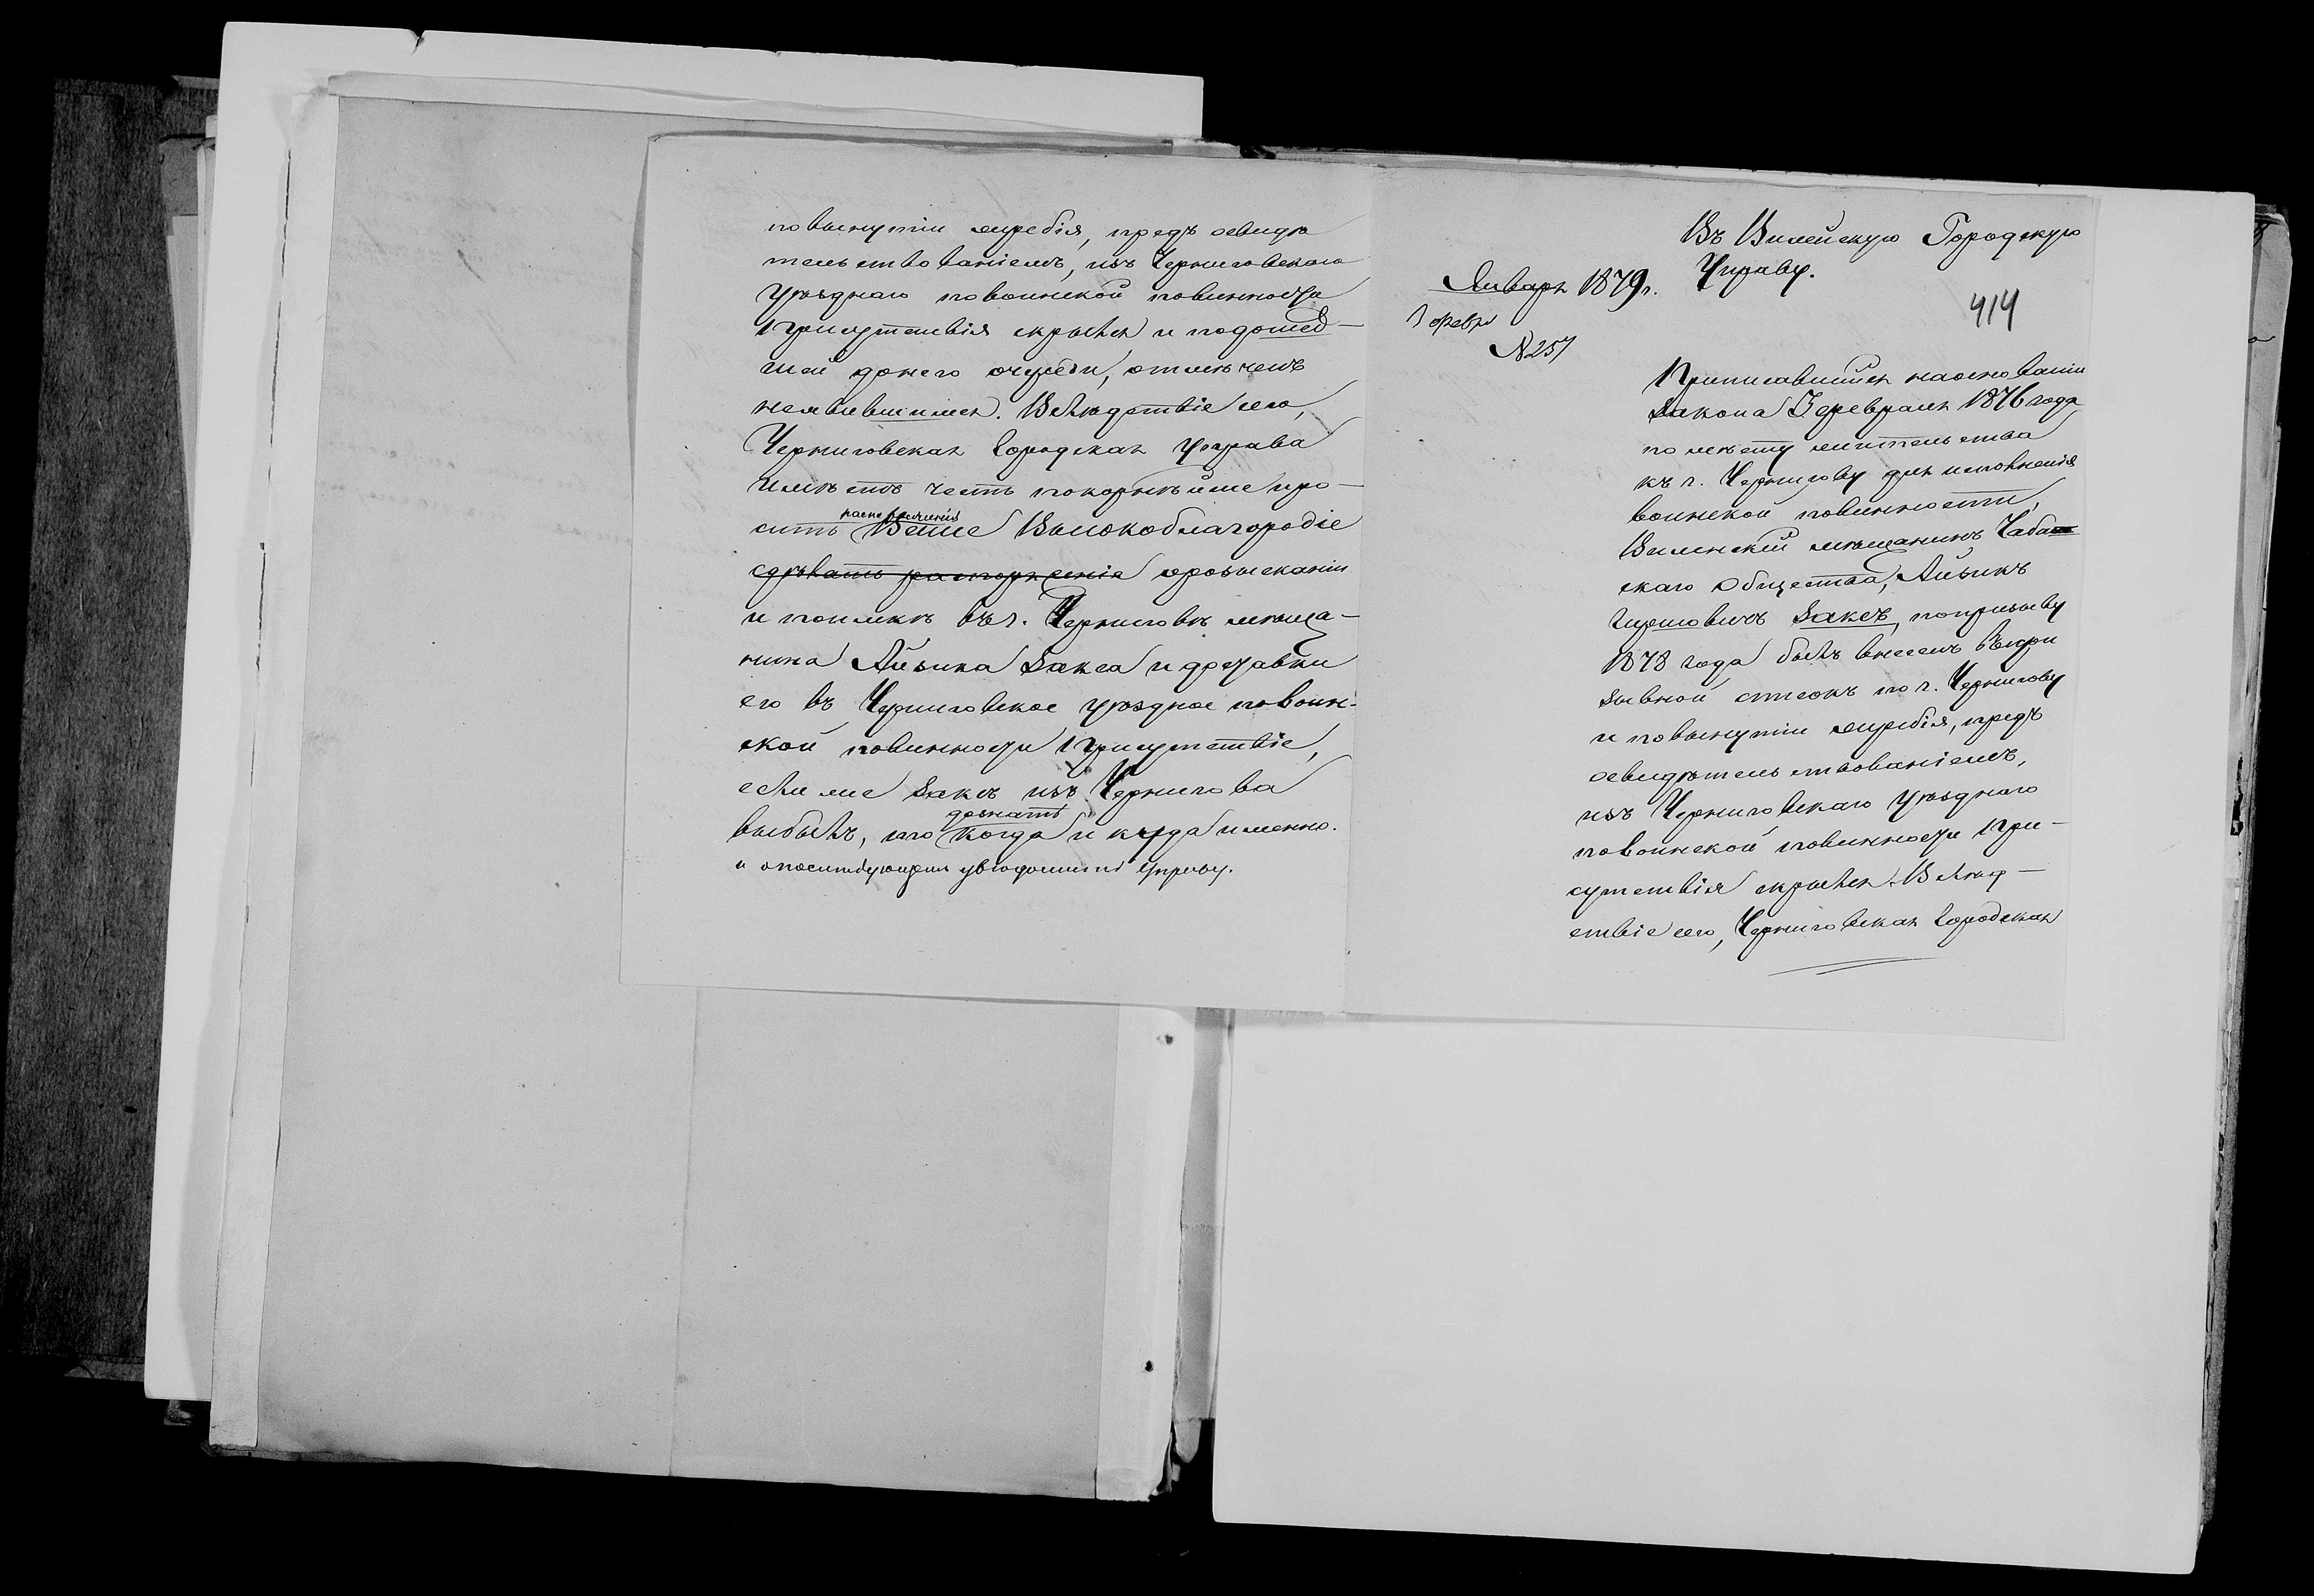 повынутіи жребія, предъ освидѣ
тельствованіемъ, изъ Черниговскаго
Уѣзднаго повоинской повинности
Присутствія скрылся и подошед-
шей донего очереди, отмѣченъ
неявившимся. Вслѣдствіе сего,
Черниговская Городская Управа
имѣетъ честь покорнѣйше про-
распоряженія
сить Ваше Высокоблагородіе
сдѣлать распоряженіе орозысканіи
и поимкѣ въ г. Черниговѣ мѣща-
нина Айзика Закса и доставки
его въ Черниговское уѣздное повоин-
ской повинности Присутствіе,
если же Заксъ изъ Чернигова
дознать
выбылъ, то когда и куда именно.
и опослѣдующемъ увѣдомить Управу.
Въ Вилейскую Городскую
Управу.
Января 1879 г.
3 февр
№ 257
414
Приписавшійся наосновании
Закона 3 февраля 1876 года
по мѣсту жительства
къ г. Чернигову для исполненія
воинской повинности,
Виленскій мѣщанинъ Чаба
скаго Общества, Айзикъ
Гиршовичъ Заксъ, попризыву
1878 года былъ внесенъ въпри
зывной списокъ по г. Чернигову
и повынутіи жребія, предъ
освидѣтельствованіемъ,
изъ Черниговскаго Уѣзднаго
повоинской повинности При-
сутствія скрылся. Вслѣд-
ствіе сего, Черниговская Городская